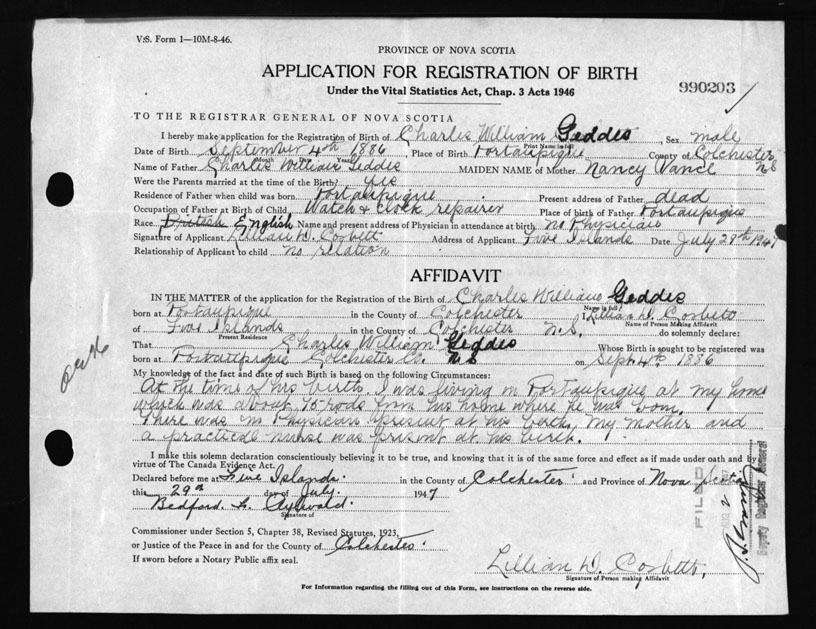 V.S. Form 1—10M-8-46.
PROVINCE OF NOVA SCOTIA
APPLICATION FOR REGISTRATION OF BIRTH
Under the Vital Statistics Act, Chap. 3 Acts 1946
990203
TO THE REGISTRAR GENERAL OF NOVA SCOTIA
I hereby make application for the Registration of Birth of Charles William Geddes, Sex male
Print Name in full
Date of Birth September 4th 1886 Place of Birth Portaupique County of Colchester N S
Month Date Year
Name of Father Charles William Geddes MAIDEN NAME of Mother Nancy Vance
Were the Parents married at the time of the Birth? yes
Residence of Father when child was born Portaupique Present address of Father dead
Occupation of Father at Birth of Child Watch & clock repairer Place of birth of Father Portaupique
Race British English Name and present address of Physician in attendance at birth no Physician
Signature of Applicant Lillian D. Corbett Address of Applicant Five Islands Date July 29th 1947
Relationship of Applicant to child no relation
AFFIDAVIT
IN THE MATTER of the application for the Registration of the Birth of Charles William Geddes
Name in full
born at Portaupique in the County of Colchester I, Lillian D. Corbett
Name of Person Making Affidavit
of Five Islands in the County of Colchester N.S. do solemnly declare:
Present Residence
That Charles William Geddes Whose Birth is sought to be registered was
born at Portaupique Colchester Co. N S on Sept. 4th 1886
My knowledge of the fact and date of such Birth is based on the following Circumstances:
At the time of his birth I was living in Portaupique at my home
which was about 75 rods from his home where he was born.
There was no Physician present at his birth, my mother and
a practical nurse was present at his birth.
I make this solemn declaration conscientiously believing it to be true, and knowing that it is of the same force and effect as if made under oath and by
virtue of The Canada Evidence Act.
Declared before me at Five Islands in the County of Colchester and Province of Nova Scotia
this 29th day of July. 1947
Bedford
Signature of
Commissioner under Section 5, Chapter 38, Revised Statutes, 1923,
or Justice of the Peace in and for the County of Colchester.
If sworn before a Notary Public affix seal.
Lillian D. Corbett,
Signature of Person making Affidavit
For Information regarding the filling out of this Form, see instructions on the reverse side.
FILED
Deputy Registrar General